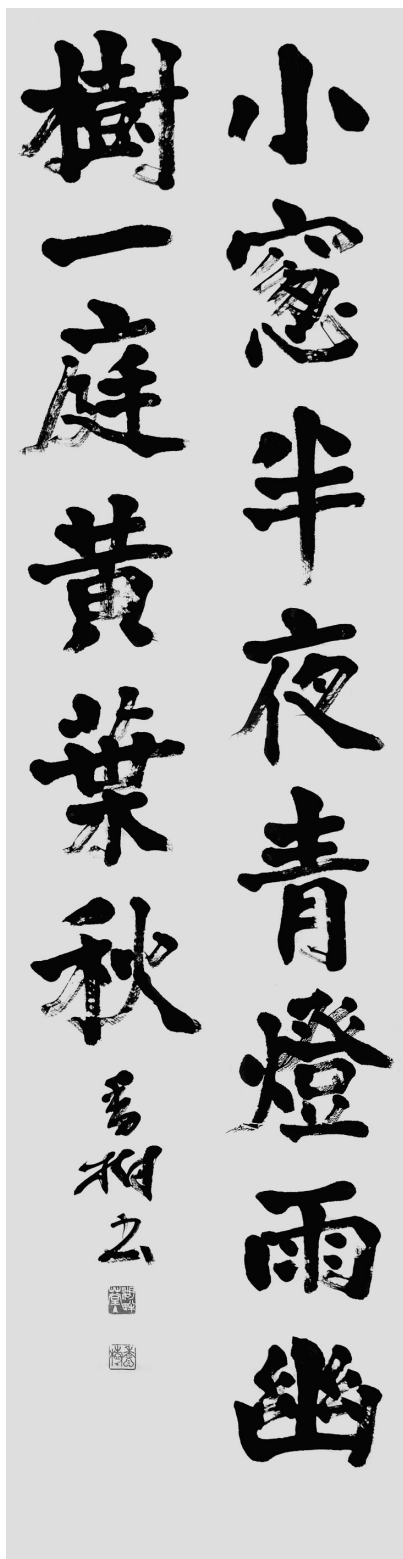 小窻半夜青燈雨幽
樹一庭黄葉秋
書